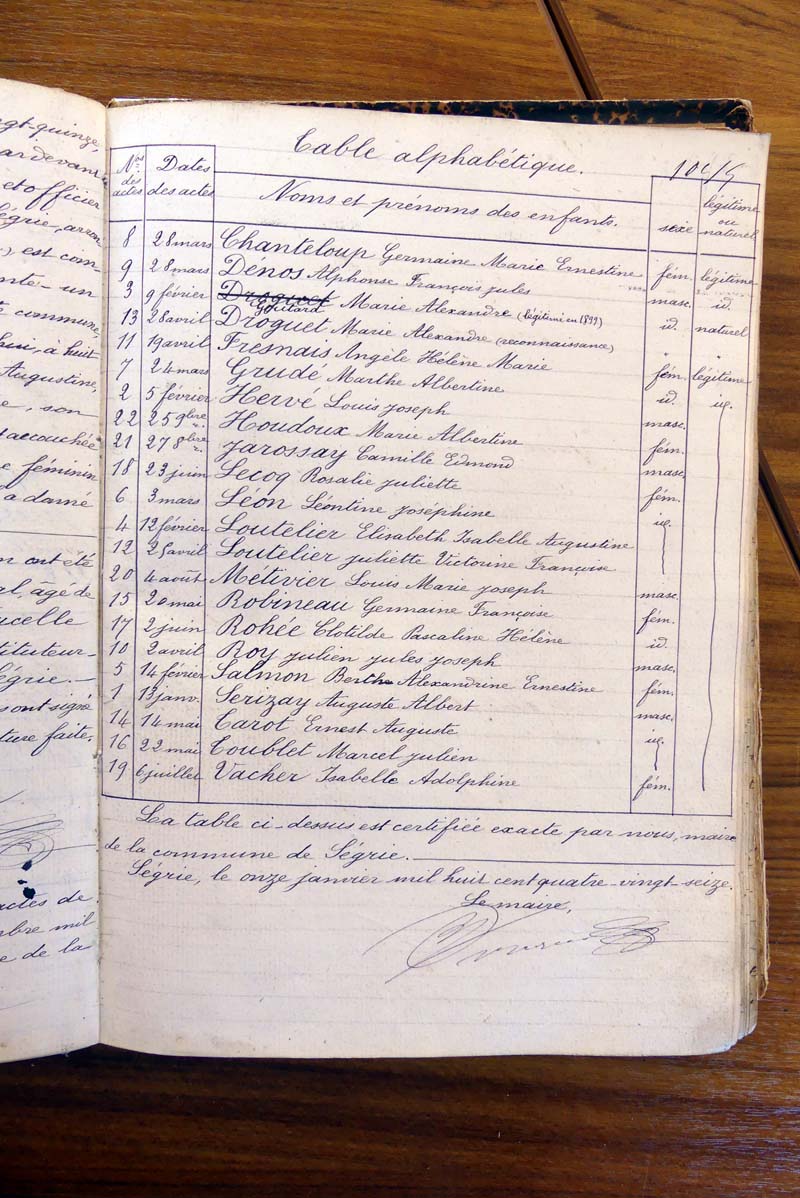 ngt-quinze,
ar devant
et officier
égrie, arron
) est com-
ante-un
commune,
à huit
Augustine,
e, son
accouchée
e féminin
a damé
n ont été
al, âgé de
ucelle
stituteur
égrie.
sont signé
ture faite.
actes de
mbre mil
e de la
Table alphabétique.
Nos des actes Dates des actes Noms et prénoms des enfants. sexe légitime ou naturel
8 28 mars Chanteloup Germaine Marie Ernestine fém. légitime
9 28 mars Dénos Alphonse François Jules masc. id.
3 9 février Droguet Goutard Marie Alexandre (légitimé en 1899) id. naturel
13 28 avril Droguet Marie Alexandre (reconnaissance) " "
11 19 avril Fresnais Angèle Hélène Marie fém. légitime
7 24 mars Grudé Marthe Albertine id. id.
2 5 février Hervé Louis Joseph masc.
22 25 9bre Houdoux Marie Albertine fém.
21 27 8bre Jarossay Camille Edmond masc.
18 23 juin Lecoq Rosalie Juliette fém.
6 3 mars Léon Léontine Joséphine id.
4 12 février Loutelier Elisabeth Isabelle Augustine
12 25 avril Loutelier Juliette Victorine Françoise
20 4 août Métivier Louis Marie Joseph masc.
15 20 mai Robineau Germaine Françoise fém.
17 2 juin Rohée Clotilde Pascaline Hélène id.
10 2 avril Roy Julien Jules Joseph masc.
5 14 février Salmon Berthe Alexandrine Ernestine fém.
1 13 janv. Serizay Auguste Albert masc.
14 14 mai Tarot Ernest Auguste id.
16 22 mai Toublet Marcel Julien
19 6 juillet Vacher Isabelle Adolphine fém.
La table ci-dessus est certifiée exacte par nous, maire
de la commune de Ségrie.
Ségrie, le onze janvier mil huit cent quatre-vingt-seize.
Le maire,